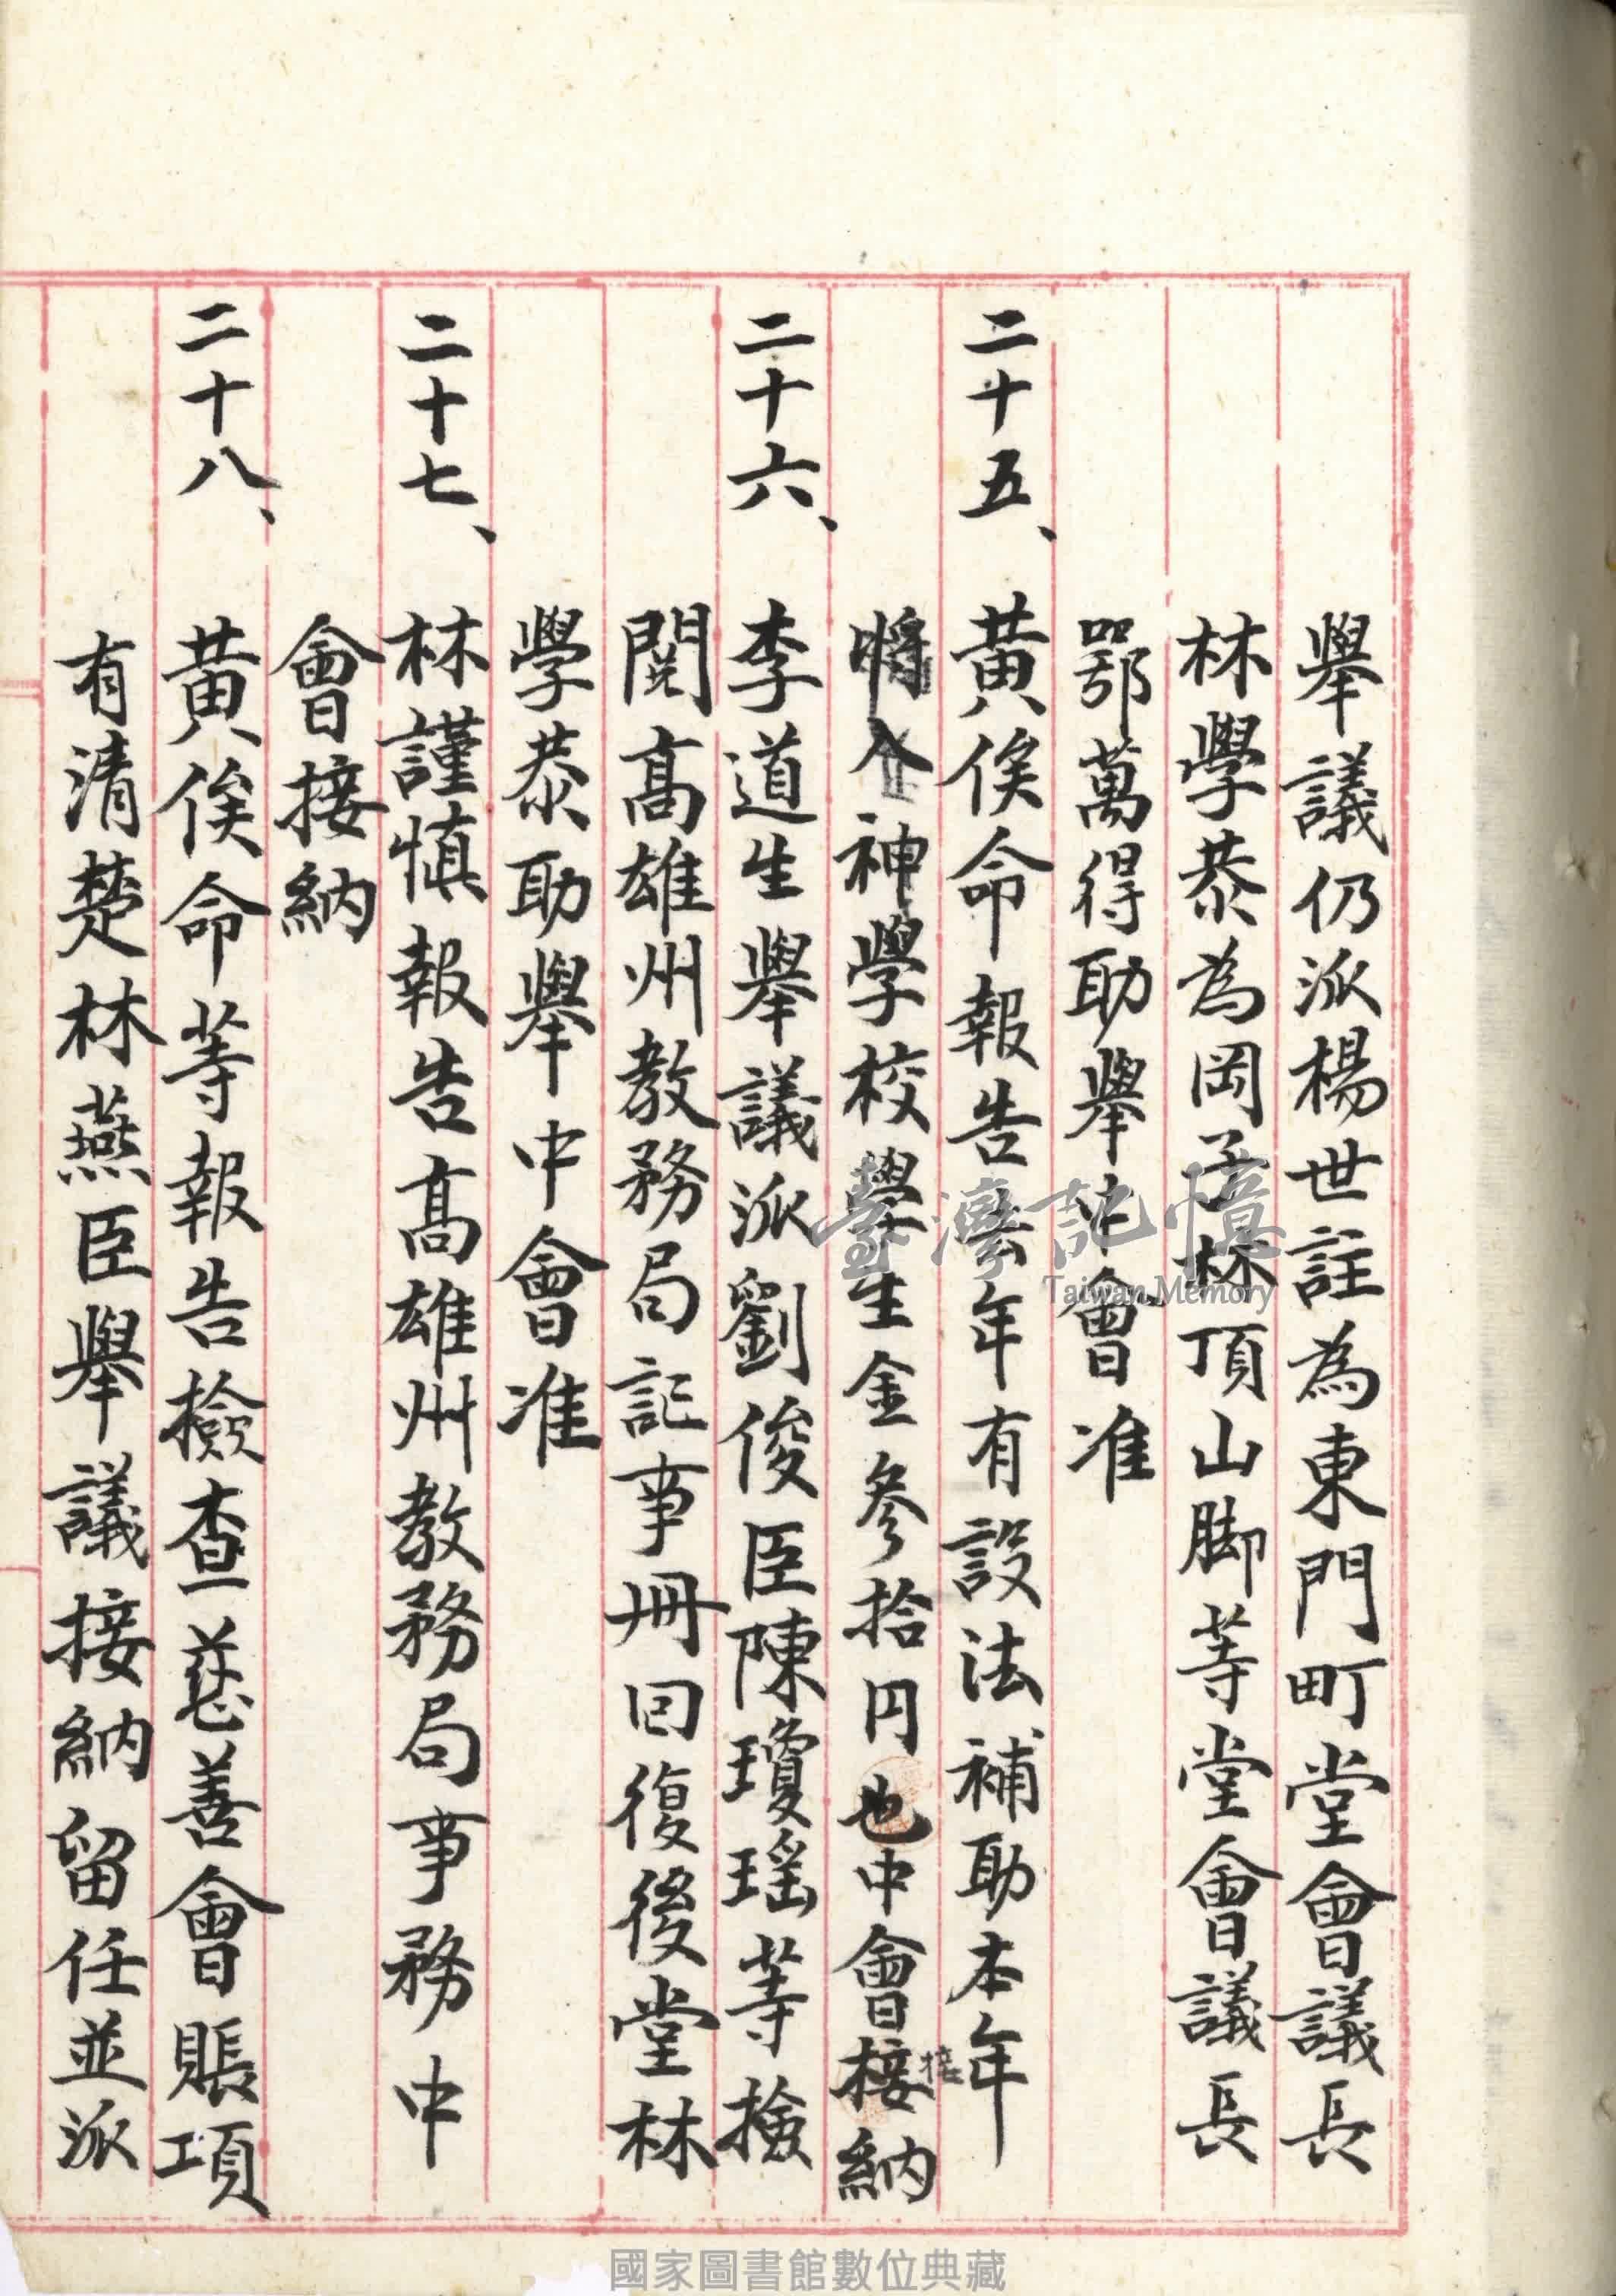 舉議仍派楊世註為東門町堂會議長
林學恭為岡仔林頂山脚等堂會議長
鄂萬得助舉中會准
二十五、黃俟命報告去年有設法補助本年
將入神學校學生金參拾円也中會接納
接
二十六、李道生舉議派劉俊臣陳瓊瑤等撿
閱高雄州教務局記事冊回復後堂林
學恭助舉中會准
二十七、林謹慎報告高雄州教務局事務中
會接納
二十八、黃俟命等報告檢查慈善會賬項
有清楚林燕臣舉議接納留任並派
臺灣記憶
Taiwan Memory
國家圖書館數位典藏